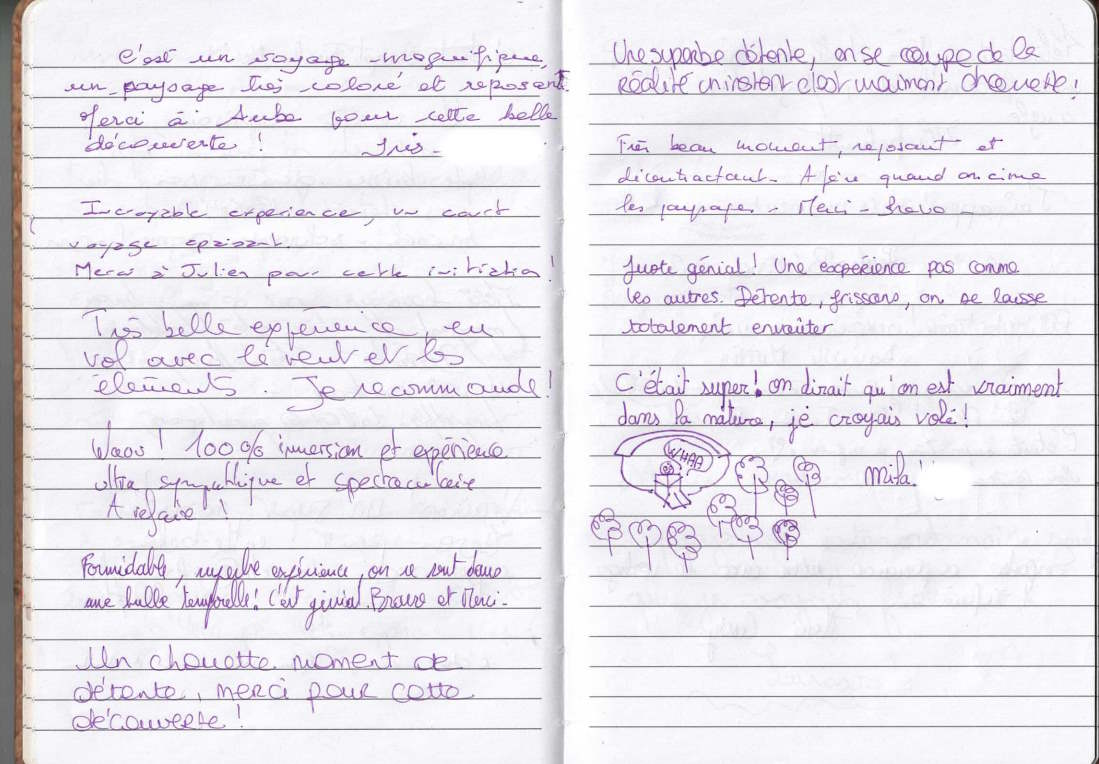 C'est un voyage magnifique,
un paysage très coloré et reposant.
Merci à Aube pour cette belle
découverte !
Iris -
Incroyable expérience, un court
voyage apaisant.
Merci à Julien pour cette initiation !
Très belle expérience, en
vol avec le vent et les
éléments. Je recommande !
Waou ! 100% immersion et expérience
ultra sympathique et spectaculaire
A refaire !
Formidable, superbe expérience, on se sent dans
une bulle temporelle ! C'est génial. Bravo et Merci -
Un chouette moment de
détente, merci pour cette
découverte !
Une superbe détente, on se coupe de la
réalité un instant c'est vraiment chouette !
Très beau moment, reposant et
décontractant - A faire quand on aime
les paysages - Merci - Bravo
Juste génial ! Une expérience pas comme
les autres. Détente, frissons, on se laisse
totalement envoûter
C'était super ! on dirait qu'on est vraiment
dans la nature, jé croyais volé !
WHAA
Mila.